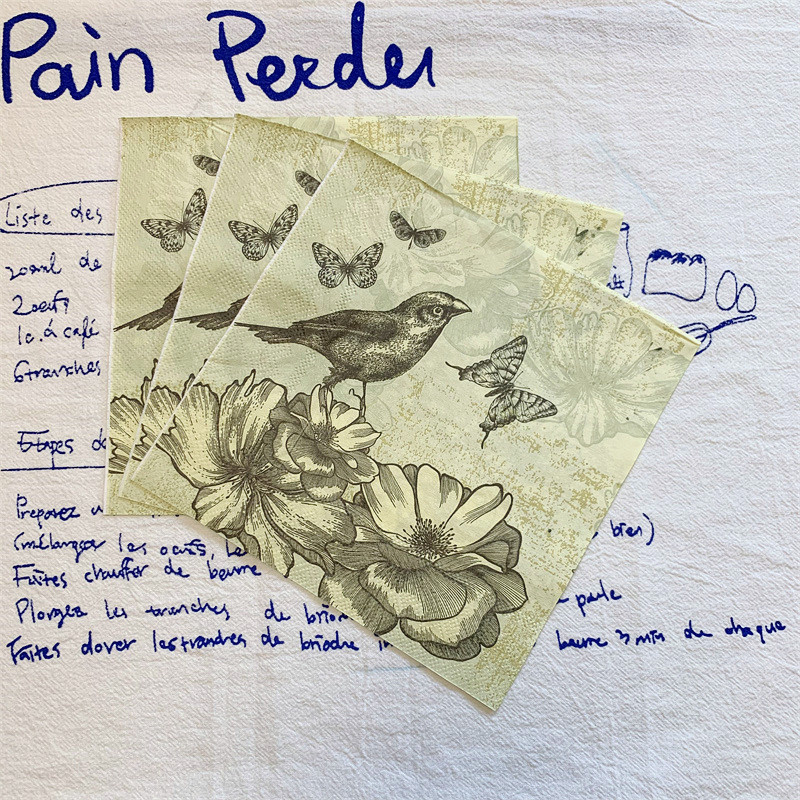 Pain Perdu
Liste des
200ml de
2 oeufs
1c. à café
6 tranches
Etapes de
Preparez u
(mélanger les oeufs, le bien)
Faites chauffer de beurre
Plongez les tranches de brio
Faites dorer les tranches de brioche beurre 3 min de chaque